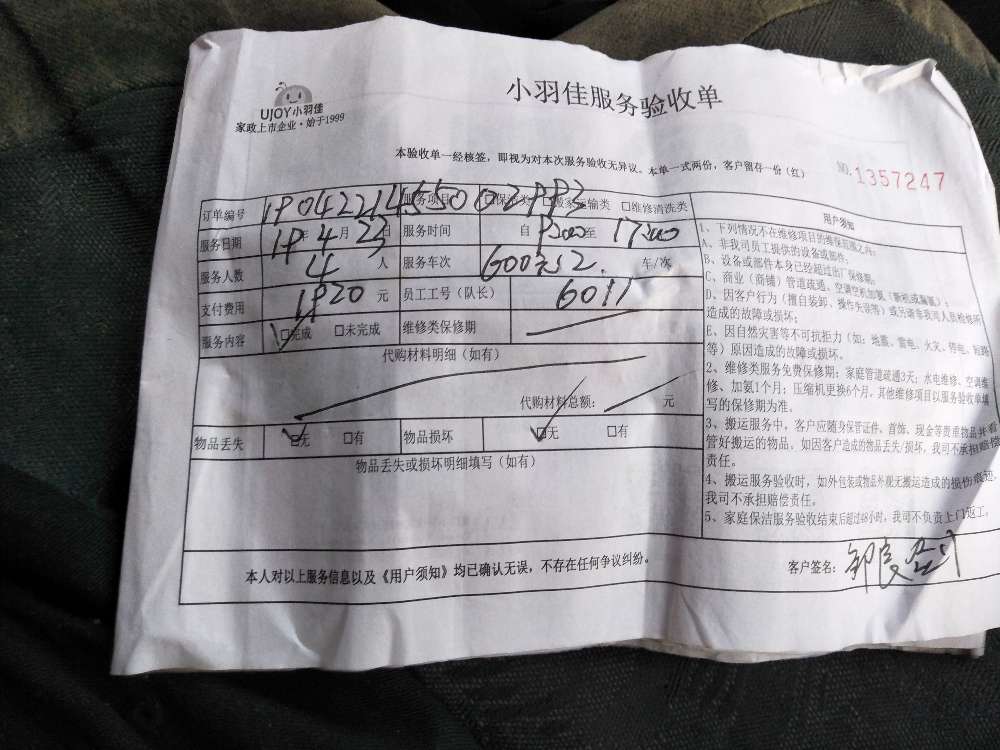 UJOY小羽佳
家政上市企业·始于1999
小羽佳服务验收单
本验收单一经核签，即视为对本次服务验收无异议。本单一式两份，客户留存一份（红）
NO.1357247
订单编号
服务项目 □保洁类 □搬家运输类 □维修清洗类
服务日期 19年4月23日 服务时间 自 至 17:00
服务人数 4人 服务车次 车/次
支付费用 1920元 员工工号（队长） 6011
服务内容 □完成 □未完成 维修类保修期
代购材料明细（如有）
代购材料总额： 元
物品丢失 □无 □有 物品损坏 □无 □有
物品丢失或损坏明细填写（如有）
本人对以上服务信息以及《用户须知》均已确认无误，不存在任何争议纠纷。
用户须知
1、下列情况不在维修项目的维保范围之内：
A、非我司员工提供的设备或部件；
B、设备或部件本身已经超过出厂保修期；
C、商业（商铺）管道疏通、空调空机加氨（新机或漏氨）；
D、因客户行为（擅自装卸、操作失误等）或另请非我司人员检修所
造成的故障或损坏；
E、因自然灾害等不可抗拒力（如：地震、雷电、火灾、停电、短路
等）原因造成的故障或损坏。
2、维修类服务免费保修期：家庭管道疏通3天；水电维修、空调维
修、加氨1个月；压缩机更换6个月。其他维修项目以服务验收单填
写的保修期为准。
3、搬运服务中，客户应随身保管证件、首饰、现金等贵重物品并看
管好搬运的物品，如因客户造成的物品丢失/损坏，我司不承担赔偿
责任。
4、搬运服务验收时，如外包装或物品外观无搬运造成的损伤痕迹，
我司不承担赔偿责任。
5、家庭保洁服务验收结束后超过48小时，我司不负责上门返工。
客户签名：